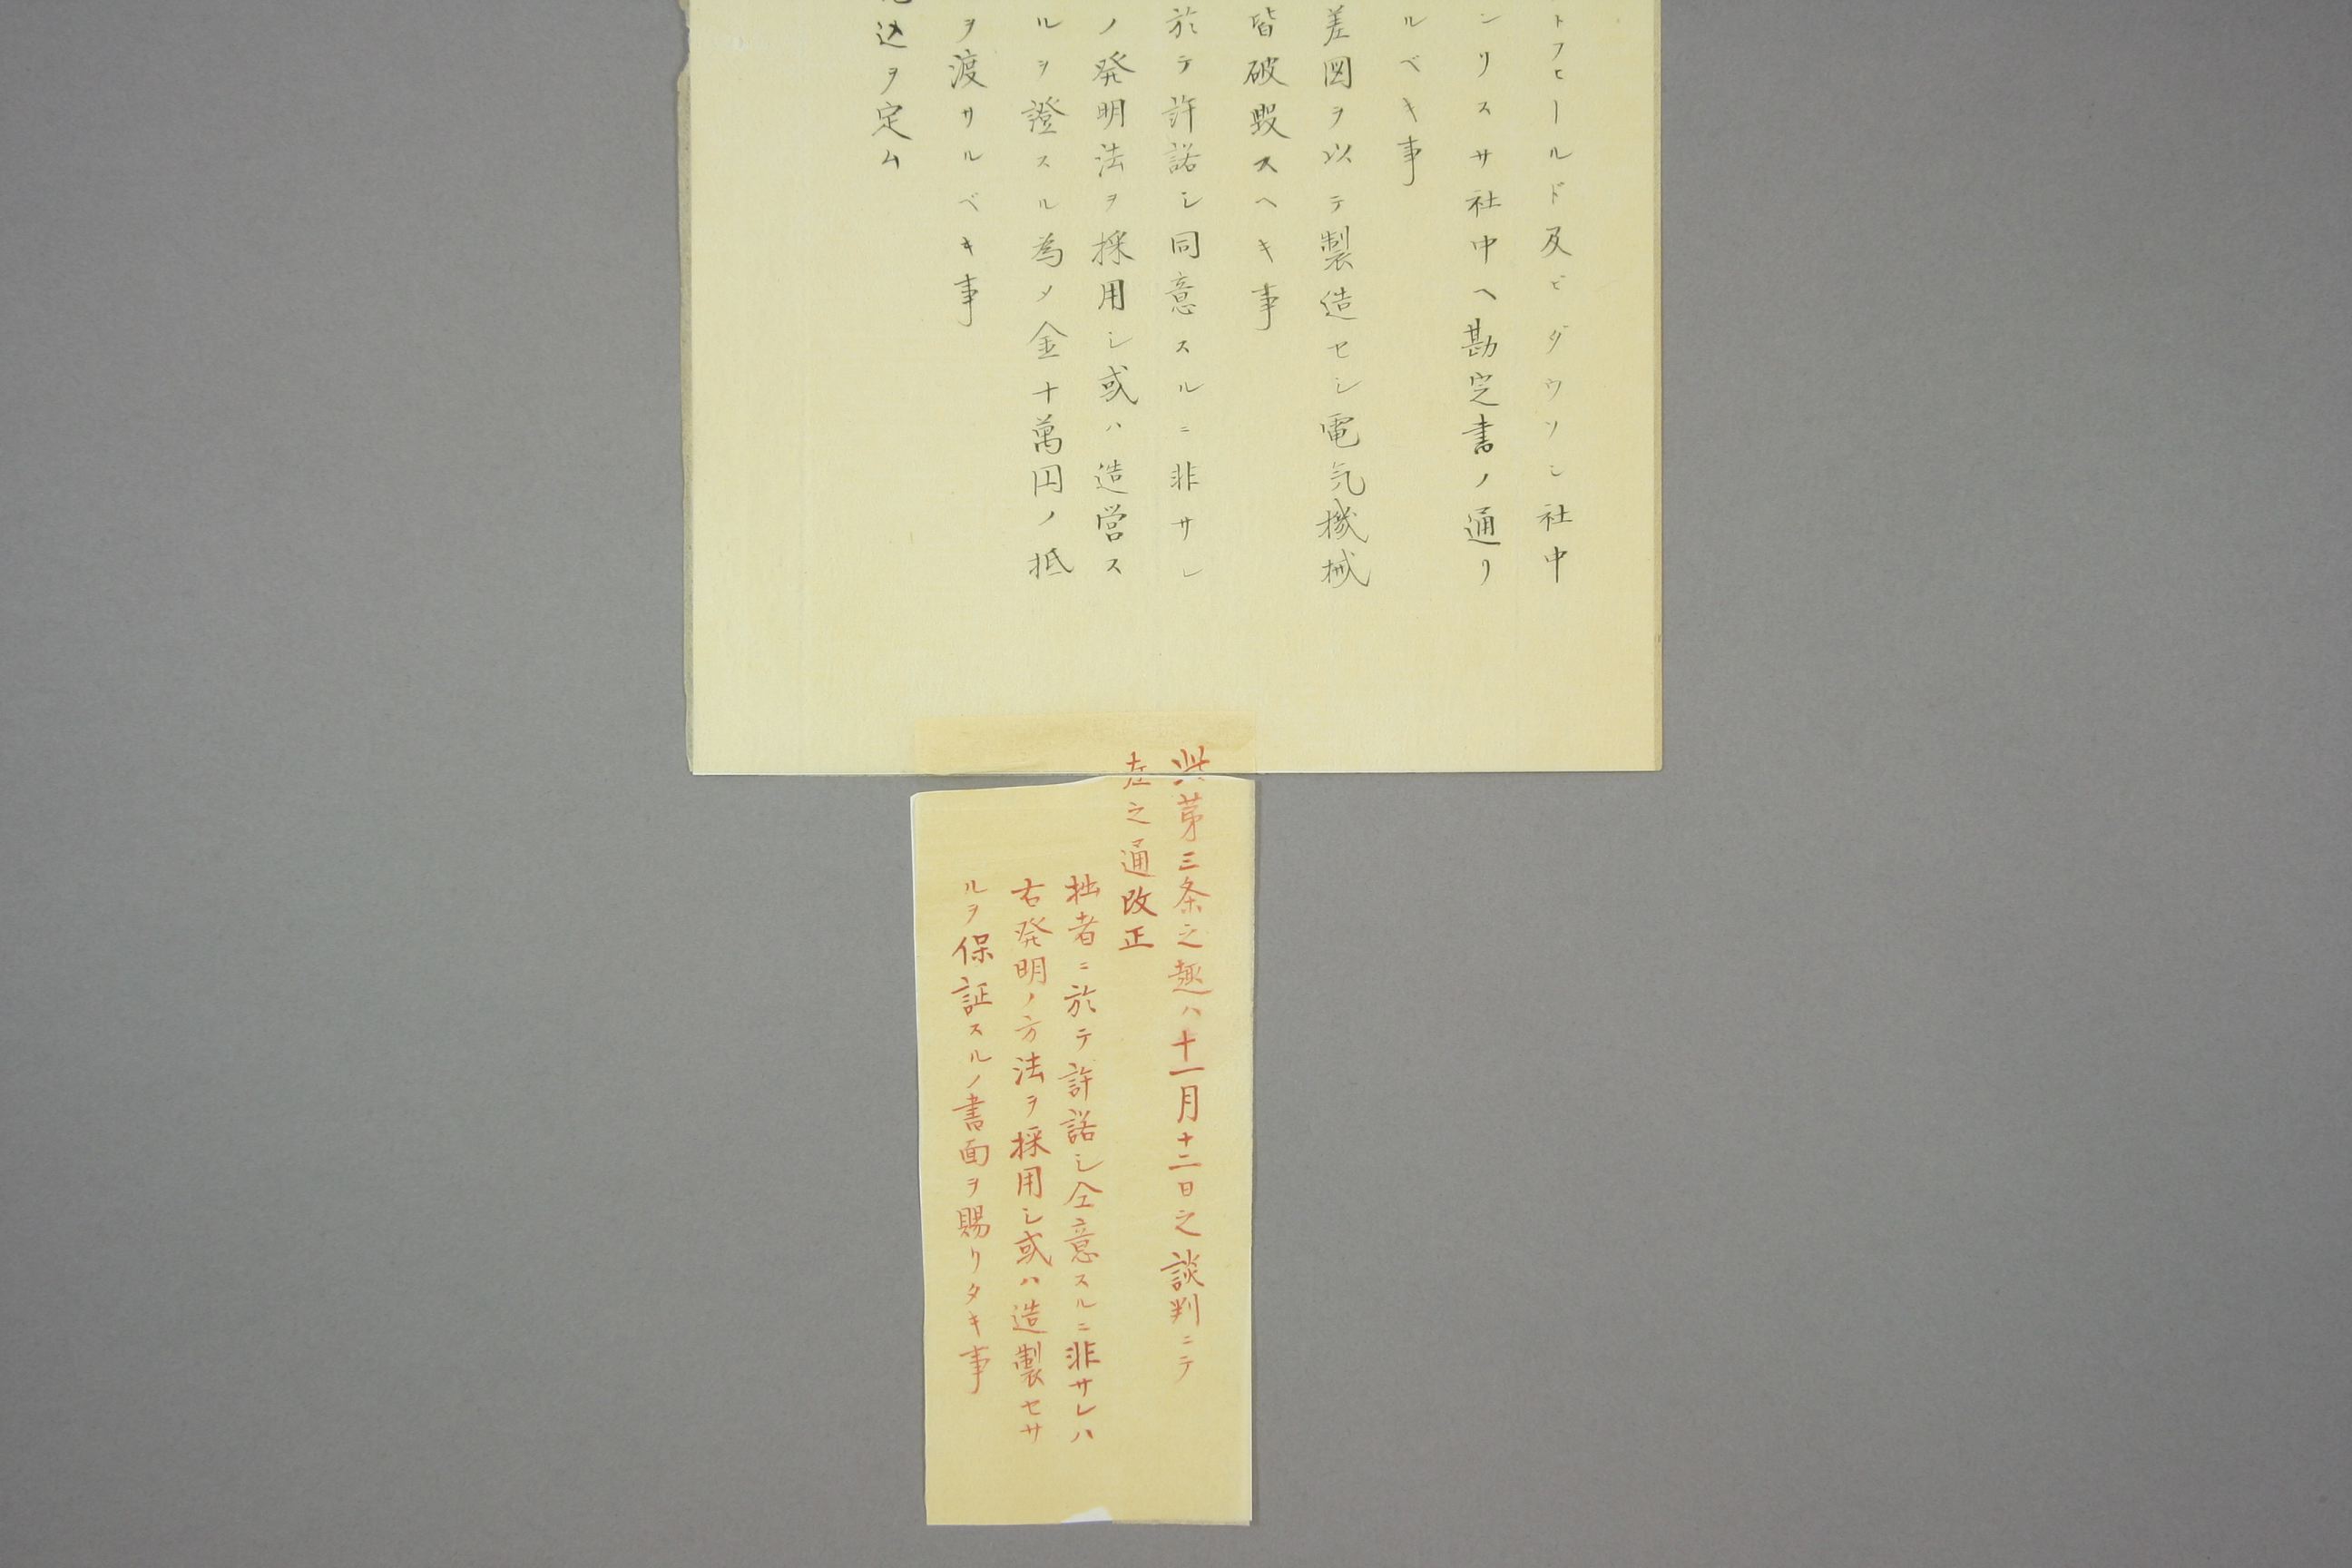 トフヒールド及ビダウソン社中
ンリスサ社中ヘ勘定書ノ通リ
ルベキ事
差図ヲ以テ製造セシ電気機械
皆破毀スヘキ事
於テ許諾シ同意スルニ非サレ
ノ発明法ヲ採用シ或ハ造営ス
ルヲ證スル為メ金十萬円ノ抵
ヲ渡サルベキ事
込ヲ定ム
此第三条之趣ハ十一月十二日之談判ニテ
左之通改正
拙者ニ於テ許諾シ仝意スルニ非サレハ
右発明ノ方法ヲ採用シ或ハ造製セサ
ルヲ保証スルノ書面ヲ賜リタキ事